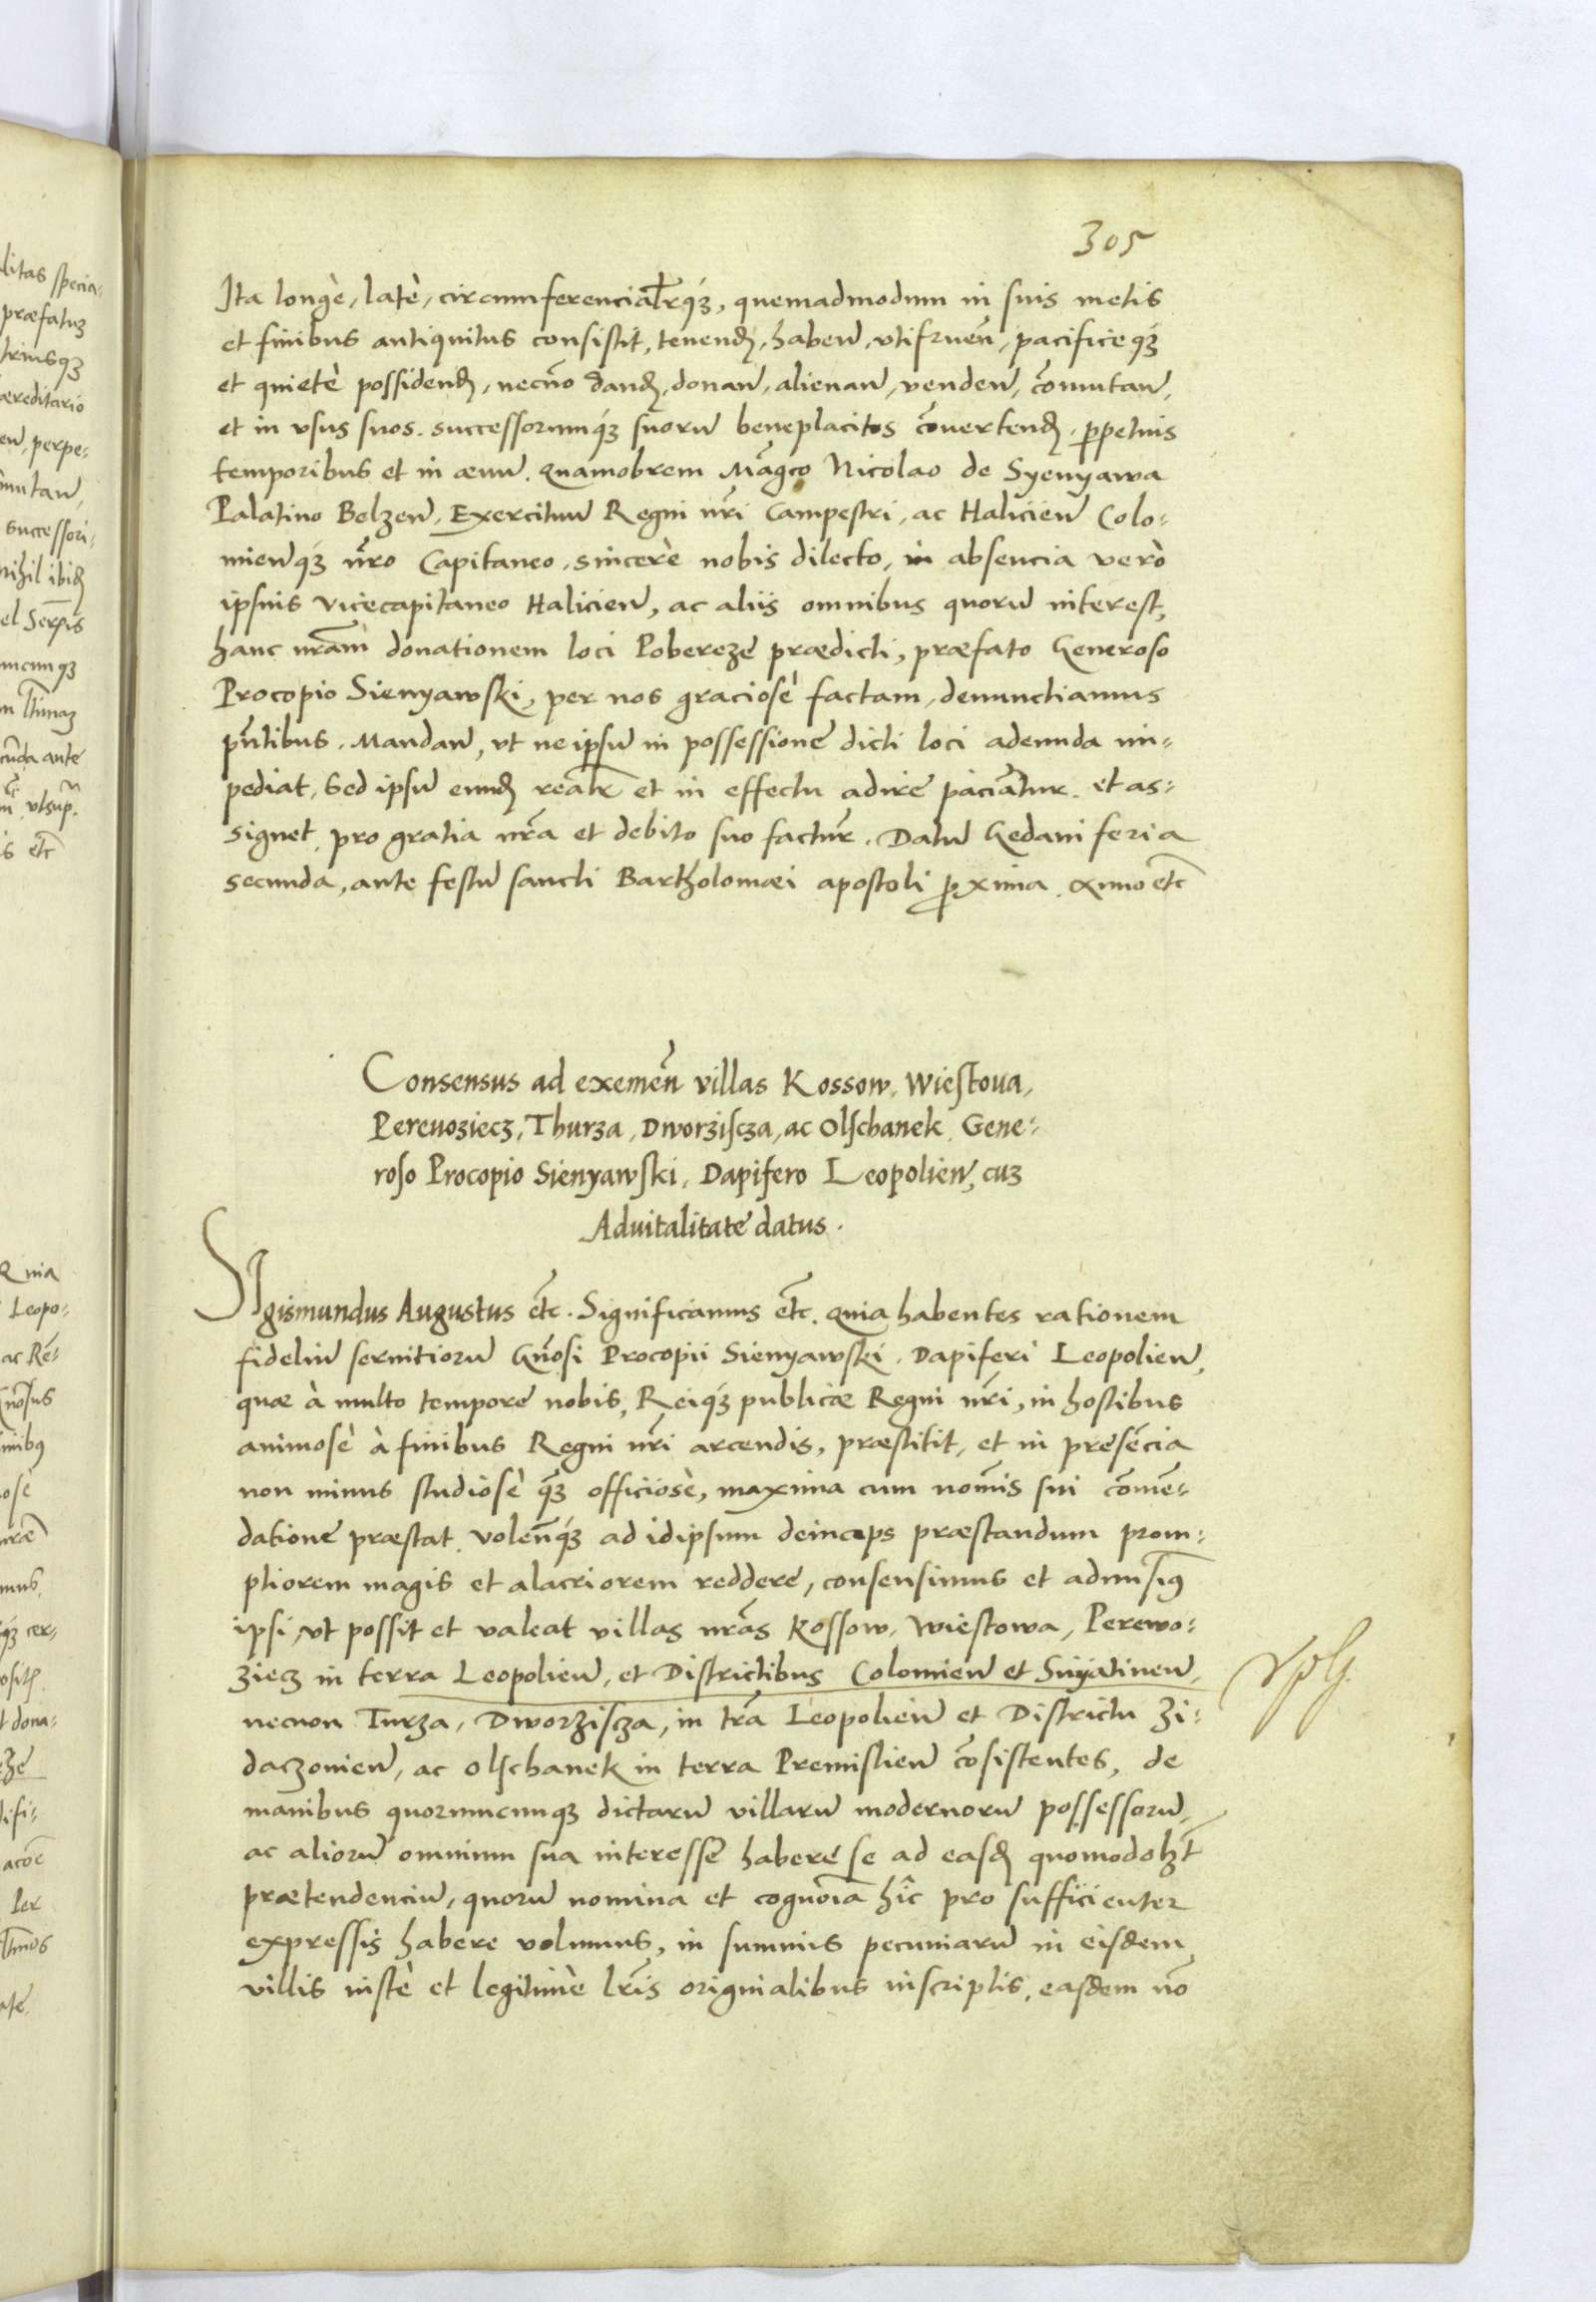 305
Ita longè, latè, circumferencialr̃q́ꝫ, quemadmodum in suis metis
et finibus antiquitus consistit, tenenđ, haben̄, vtifruen̄, pacificeq́ꝫ
et quietè possidenđ, necn̄o danđ, donan̄, alienan̄, venden̄, com̄utan̄,
et in vsus suos, successorumq́ꝫ suorū beneplacitos cōuertenđ, ꝑpetuis
temporibus et in æuū. Quamobrem Mãgco Nicolao de Syenyawa
Palatino Belzen̄, Exercituū Regni nr̃i Campestri, ac Halicien̄ Colo-
mien̄q́ꝫ nr̃o Capitaneo, sincerè nobis dilecto, in absencia verò
ipsius Vicecapitaneo Halicien̄, ac aliis omnibus quorū interest,
hanc nr̃am donationem loci Pobereze prædicti, præfato Generoso
Procopio Sienyawski, per nos graciosè factam, denunctiamus
pn̄tibus. Mandan̄, vt ne ipsū in possessione dicti loci adeunda im-
pediat, sed ipsū eunđ realr̃ et in effectu adire paciātur, et as-
signet, pro gratia nr̃a et debito suo factur̃. Datū Gedani feria
secunda, ante festū sancti Bartholomæi apostoli ꝓxima. Anno etc̃
Consensus ad exemen̄ villas Kossow, Wiestoua,
Pereuoziecz, Thurza, Dworziscza, ac Olschanek, Gene-
roso Procopio Sienyawski, Dapifero Leopolien̄, cuꝫ
Aduitalitate datus.
SIgismundus Augustus etc̃. Significamus etc̃. Quia habentes rationem
fideliū seruitiorū Gn̄osi Procopii Sienyawski, Dapiferi Leopolien̄,
quæ à multo tempore nobis, Reiq́ꝫ publicæ Regni nr̃i, in hostibus
animosè à finibus Regni nr̃i arcendis, præstitit, et in presēcia
non minus studiosè q̃ꝫ officiosè, maxima cum nom̄is sui com̄ē-
datione præstat. Volen̄q́ꝫ ad idipsum deinceps præstandum prom-
ptiorem magis et alacriorem reddere, consensimus et admisimꝰ
ipsi, vt possit et valeat villas nr̃as Kossow, Wiestowa, Perewo-
ziecz in terra Leopolien̄, et Districtibus Colomien̄ et Snijatinen̄,
necnon Turza, Dworziscza, in tr̃a Leopolien̄ et Districtu Zi-
daczouien̄, ac Olschanek in terra Premislien̄ cōsistentes, de
manibus quorumcunqꝫ dictarū villarū modernorū possessorū,
ac aliorū omnium sua interesse habere se ad easđ quomodolꝫt
prætendenciū, quorū nomina et cognoīa hîc pro sufficienter
expressis habere volumus, in summis pecuniarū in eisdem
villis iustè et legitimè lr̃is originalibus inscriptis, easdem nō